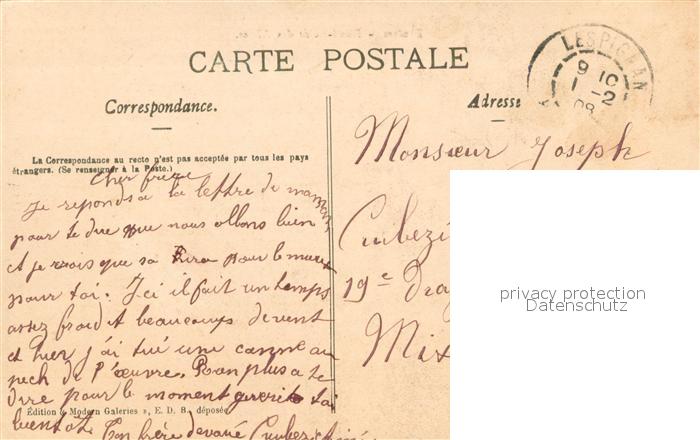 CARTE POSTALE
LESPIGNAN
9 10
1 -2
08
Correspondance.
Adresse
La Correspondance au recto n'est pas acceptée par tous les pays
étrangers. (Se renseigner à la Poste.)
Monsieur Joseph
19e Drag
Mi
Cher frère
Je reponds a la lettre de maman
pour te dire que nous allons bien
et je crois que sa sera pour le mieux
pour toi. Ici il fait un temps
assez froid et beaucoups de vent
et hier j'ai tué une canne au
pech de l'œuvre. Rien plus a te
dire pour le moment guerit toi
bientôt Ton frère devoué
Édition « Modern Galeries », E. D. B., déposée
privacy protection
Datenschutz